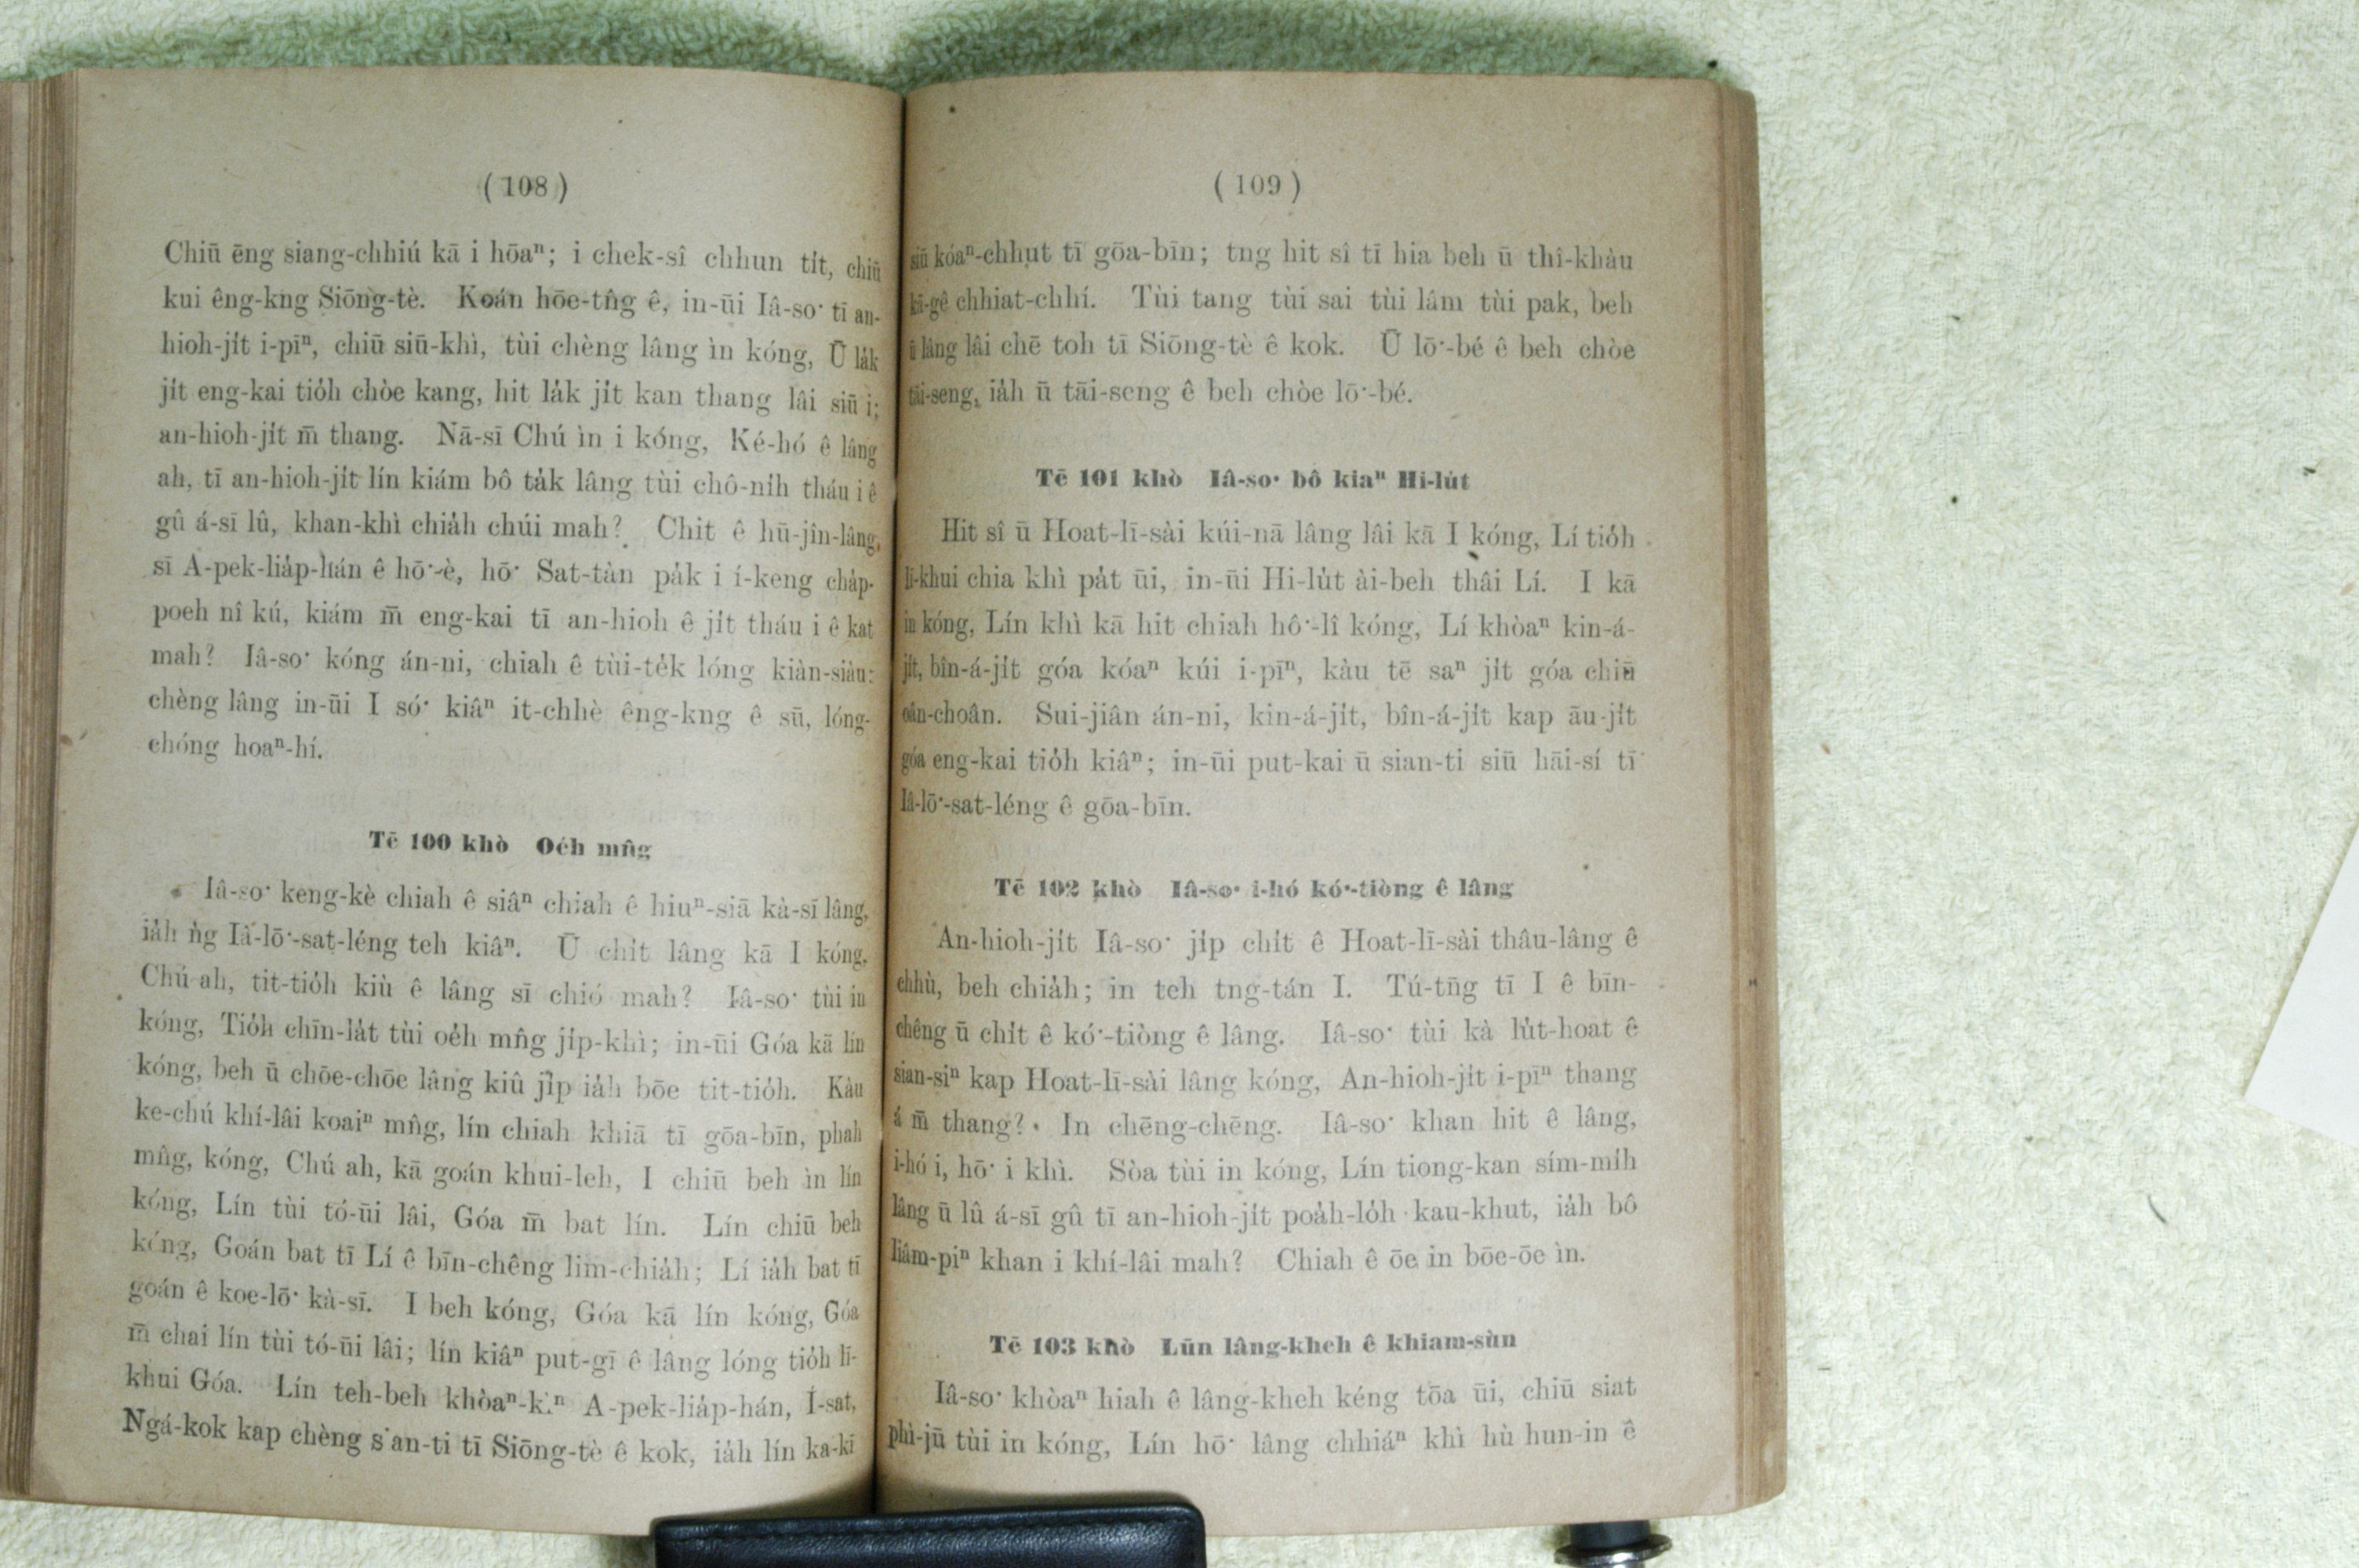 ( 108 )
Chiū ēng siang-chhiú kā i hōaⁿ; i chek-sî chhun ti̍t, chiū
kui êng-kng Siōng-tè. Koán hōe-tn̂g ê, in-ūi Iâ-so͘ tī an-
hioh-ji̍t i-pīⁿ, chiū siū-khì, tùi chèng lâng ìn kóng, Ū la̍k
ji̍t eng-kai tio̍h chòe kang, hit la̍k ji̍t kan thang lâi siū i;
an-hioh-ji̍t m̄ thang. Nā-sī Chú ìn i kóng, Ké-hó ê lâng
ah, tī an-hioh-ji̍t lín kiám bô ta̍k lâng tùi chô-ni̍h tháu i ê
gû á-sī lû, khan-khì chia̍h chúi mah? Chit ê hū-jîn-lâng,
sī A-pek-lia̍p-hán ê hō͘-è, hō͘ Sat-tàn pa̍k i í-keng cha̍p-
poeh nî kú, kiám m̄ eng-kai tī an-hioh ê ji̍t tháu i ê kat
mah? Iâ-so͘ kóng án-ni, chiah ê tùi-te̍k lóng kiàn-siàu:
chèng lâng in-ūi I só͘ kiâⁿ it-chhè êng-kng ê sū, lóng-
chóng hoaⁿ-hí.
Tē 100 khò Oe̍h mn̂g
Iâ-so͘ keng-kè chiah ê siâⁿ chiah ê hiuⁿ-siā kà-sī lâng,
ia̍h ǹg Iâ-lō͘-sat-léng teh kiâⁿ. Ū chi̍t lâng kā I kóng,
Chú ah, tit-tio̍h kiù ê lâng sī chió mah? Iâ-so͘ tùi in
kóng, Tio̍h chīn-la̍t tùi oe̍h mn̂g ji̍p-khì; in-ūi Góa kā lín
kóng, beh ū chōe-chōe lâng kiû ji̍p ia̍h bōe tit-tio̍h. Kàu
ke-chú khí-lâi koaiⁿ mn̂g, lín chiah khiā tī gōa-bīn, phah
mn̂g, kóng, Chú ah, kā goán khui-leh, I chiū beh ìn lín
kóng, Lín tùi tó-ūi lâi, Góa m̄ bat lín. Lín chiū beh
kóng, Goán bat tī Lí ê bīn-chêng lim-chia̍h; Lí ia̍h bat tī
goán ê koe-lō͘ kà-sī. I beh kóng, Góa kā lín kóng, Góa
m̄ chai lín tùi tó-ūi lâi; lín kiâⁿ put-gī ê lâng lóng tio̍h lī-
khui Góa. Lín teh-beh khòaⁿ-kìⁿ A-pek-lia̍p-hán, Í-sat,
Ngá-kok kap chèng sian-ti tī Siōng-tè ê kok, ia̍h lín ka-kī
( 109 )
siū kóaⁿ-chhut tī gōa-bīn; tng hit sî tī hia beh ū thî-khàu
kā-gê chhiat-chhí. Tùi tang tùi sai tùi lâm tùi pak, beh
ū lâng lâi chē toh tī Siōng-tè ê kok. Ū lō͘-bé ê beh chòe
tāi-seng, ia̍h ū tāi-seng ê beh chòe lō͘-bé.
Tē 101 khò Iâ-so͘ bô kiaⁿ Hi-lu̍t
Hit sî ū Hoat-lī-sài kúi-nā lâng lâi kā I kóng, Lí tio̍h
lī-khui chia khì pa̍t ūi, in-ūi Hi-lu̍t ài-beh thâi Lí. I kā
in kóng, Lín khì kā hit chiah hô͘-lî kóng, Lí khòaⁿ kin-á-
ji̍t, bîn-á-ji̍t góa kóaⁿ kúi i-pīⁿ, kàu tē saⁿ ji̍t góa chiū
oân-choân. Sui-jiân án-ni, kin-á-ji̍t, bîn-á-ji̍t kap āu-ji̍t
góa eng-kai tio̍h kiâⁿ; in-ūi put-kai ū sian-ti siū hāi-sí tī
Iâ-lō͘-sat-léng ê gōa-bīn.
Tē 102 khò Iâ-so͘ i-hó kó͘-tiòng ê lâng
An-hioh-ji̍t Iâ-so͘ ji̍p chi̍t ê Hoat-lī-sài thâu-lâng ê
chhù, beh chia̍h; in teh tng-tán I. Tú-tn̄g tī I ê bīn-
chêng ū chi̍t ê kó͘-tiòng ê lâng. Iâ-so͘ tùi kà lu̍t-hoat ê
sian-siⁿ kap Hoat-lī-sài lâng kóng, An-hioh-ji̍t i-pīⁿ thang
á m̄ thang? In chēng-chēng. Iâ-so͘ khan hit ê lâng,
i-hó i, hō͘ i khì. Sòa tùi in kóng, Lín tiong-kan sím-mi̍h
lâng ū lû á-sī gû tī an-hioh-ji̍t poa̍h-lo̍h kau-khut, ia̍h bô
liâm-piⁿ khan i khí-lâi mah? Chiah ê ōe in bōe-ōe ìn.
Tē 103 khò Lūn lâng-kheh ê khiam-sùn
Iâ-so͘ khòaⁿ hiah ê lâng-kheh kéng tōa ūi, chiū siat
phì-jū tùi in kóng, Lín hō͘ lâng chhiáⁿ khì hù hun-in ê